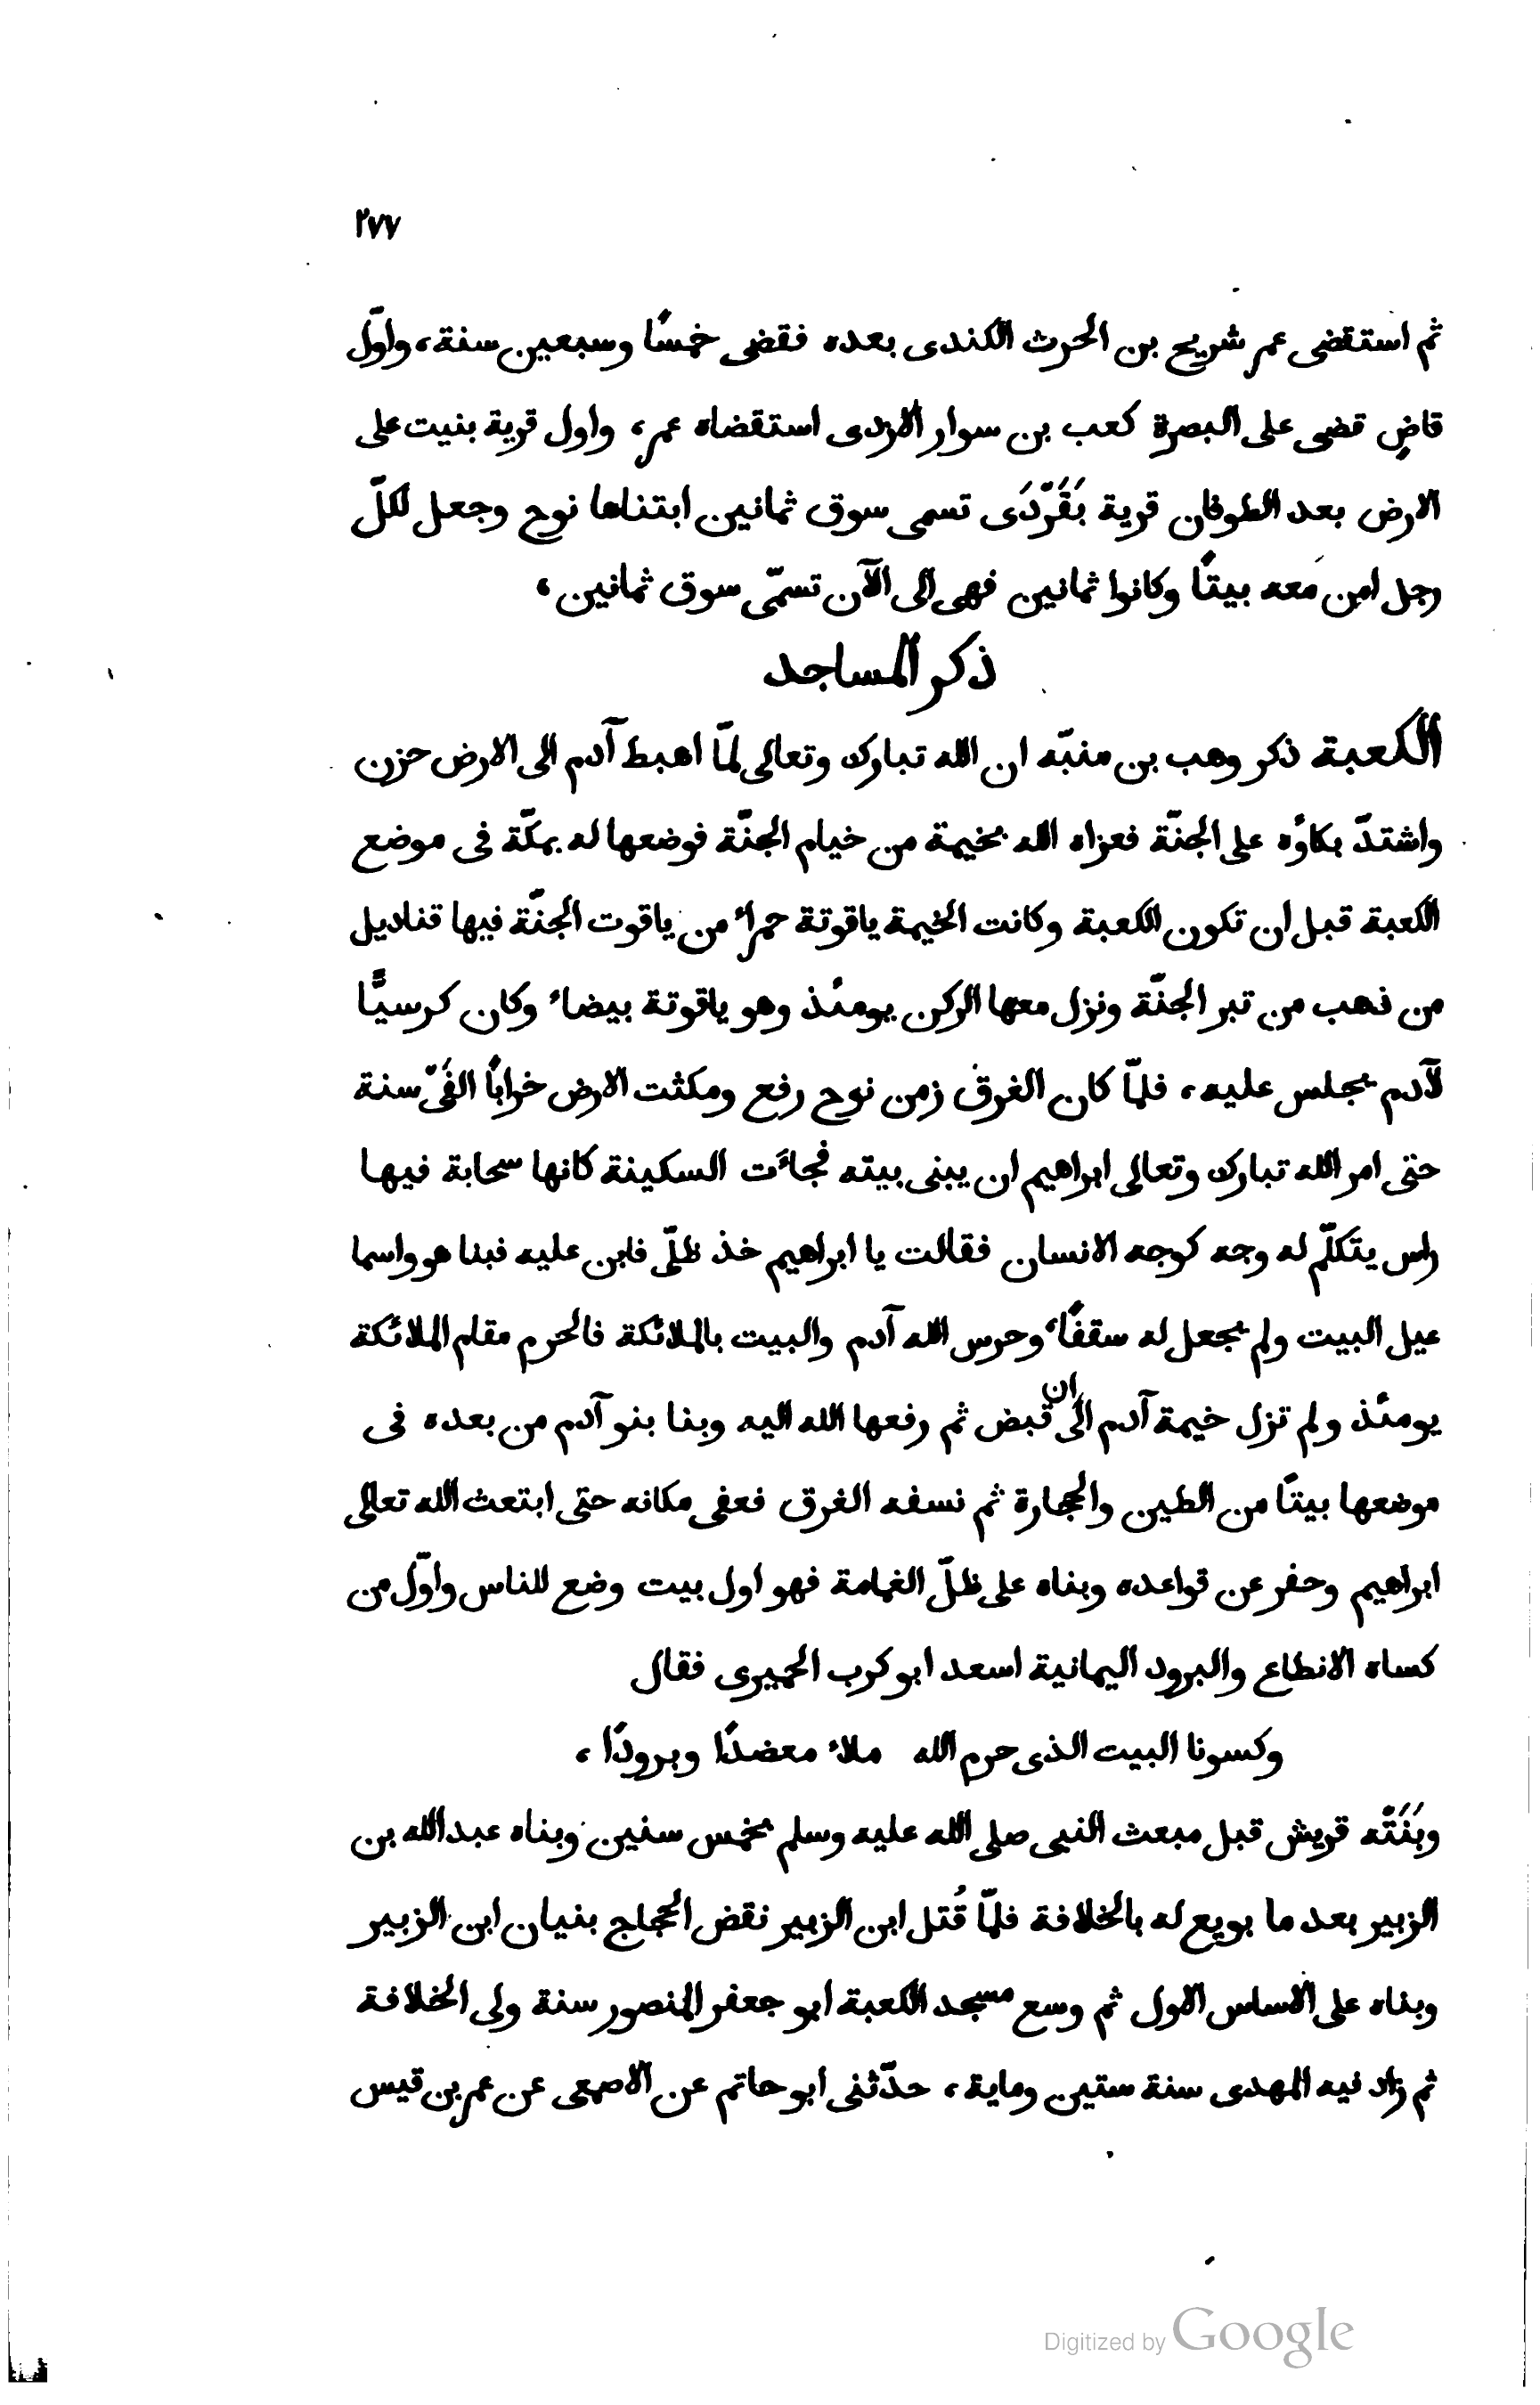 ٢٧٧
ثم استقضى عمر شريح بن الحرث الكندى بعده فقضى خمسًا وسبعين سنة، واوّل
قاضٍ قضى على البصرة كعب بن سوار الازدى استقضاه عمر، واول قرية بنيت على
الارض بعد الطوفان قرية بَقَرْدَى تسمى سوق ثمانين ابتناها نوح وجعل لكلّ
رجل امن معه بيتًا وكانوا ثمانين فهى الى الآن تسمّى سوق ثمانين،
ذكر المساجد
الكعبة ذكر وهب بن منبّه ان الله تبارك وتعالى لمّا اهبط آدم الى الارض حزن
واشتدّ بكاؤه على الجنّة فعزاه الله بخيمة من خيام الجنّة فوضعها له بمكّة فى موضع
الكعبة قبل ان تكون الكعبة وكانت الخيمة ياقوتة حمراء من ياقوت الجنّة فيها قناديل
من ذهب من تبر الجنّة ونزل معها الركن يومئذ وهو ياقوتة بيضاء وكان كرسيًّا
لآدم يجلس عليه، فلمّا كان الغرق زمن نوح رفع ومكثت الارض خرابًا الفَىْ سنة
حتى امر الله تبارك وتعالى ابراهيم ان يبنى بيته فجاءَت السكينة كانها سحابة فيها
راس يتكلّم له وجه كوجه الانسان فقالت يا ابراهيم خذ ظلّى فابن عليه فبنا هو واسما
عيل البيت ولم يجعل له سقفًا، وحرس الله آدم والبيت بالملائكة فالحرم مقام الملائكة
يومئذ ولم تزل خيمة آدم الى ان قبض ثم رفعها الله اليه وبنا بنو آدم من بعده فى
موضعها بيتًا من الطين والحجارة ثم نسفه الغرق فعفى مكانه حتى ابتعث الله تعالى
ابراهيم وحفر عن قواعده وبناه على ظلّ الغمامة فهو اول بيت وضع للناس واوّل من
كساه الانطاع والبرود اليمانية اسعد ابو كرب الحميرى فقال
وكسونا البيت الذى حرم الله ملاء معضدًا وبرودًا،
وبَنَتْه قريش قبل مبعث النبى صلى الله عليه وسلم بخمس سنين وبناه عبدالله بن
الزبير بعد ما بويع له بالخلافة فلمّا قُتل ابن الزبير نقض الحجاج بنيان ابن الزبير
وبناه على الاساس الاول ثم وسع مسجد الكعبة ابو جعفر المنصور سنة ولى الخلافة
ثم زاد فيه المهدى سنة ستين وماية، حدّثنى ابو حاتم عن الاصمعى عن عمر بن قيس
Digitized by Google